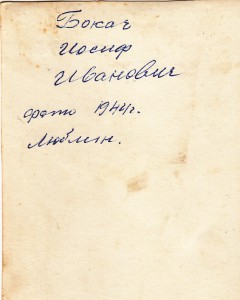 Бокач
Иосиф
Иванович
фото 1944г.
Люблин.